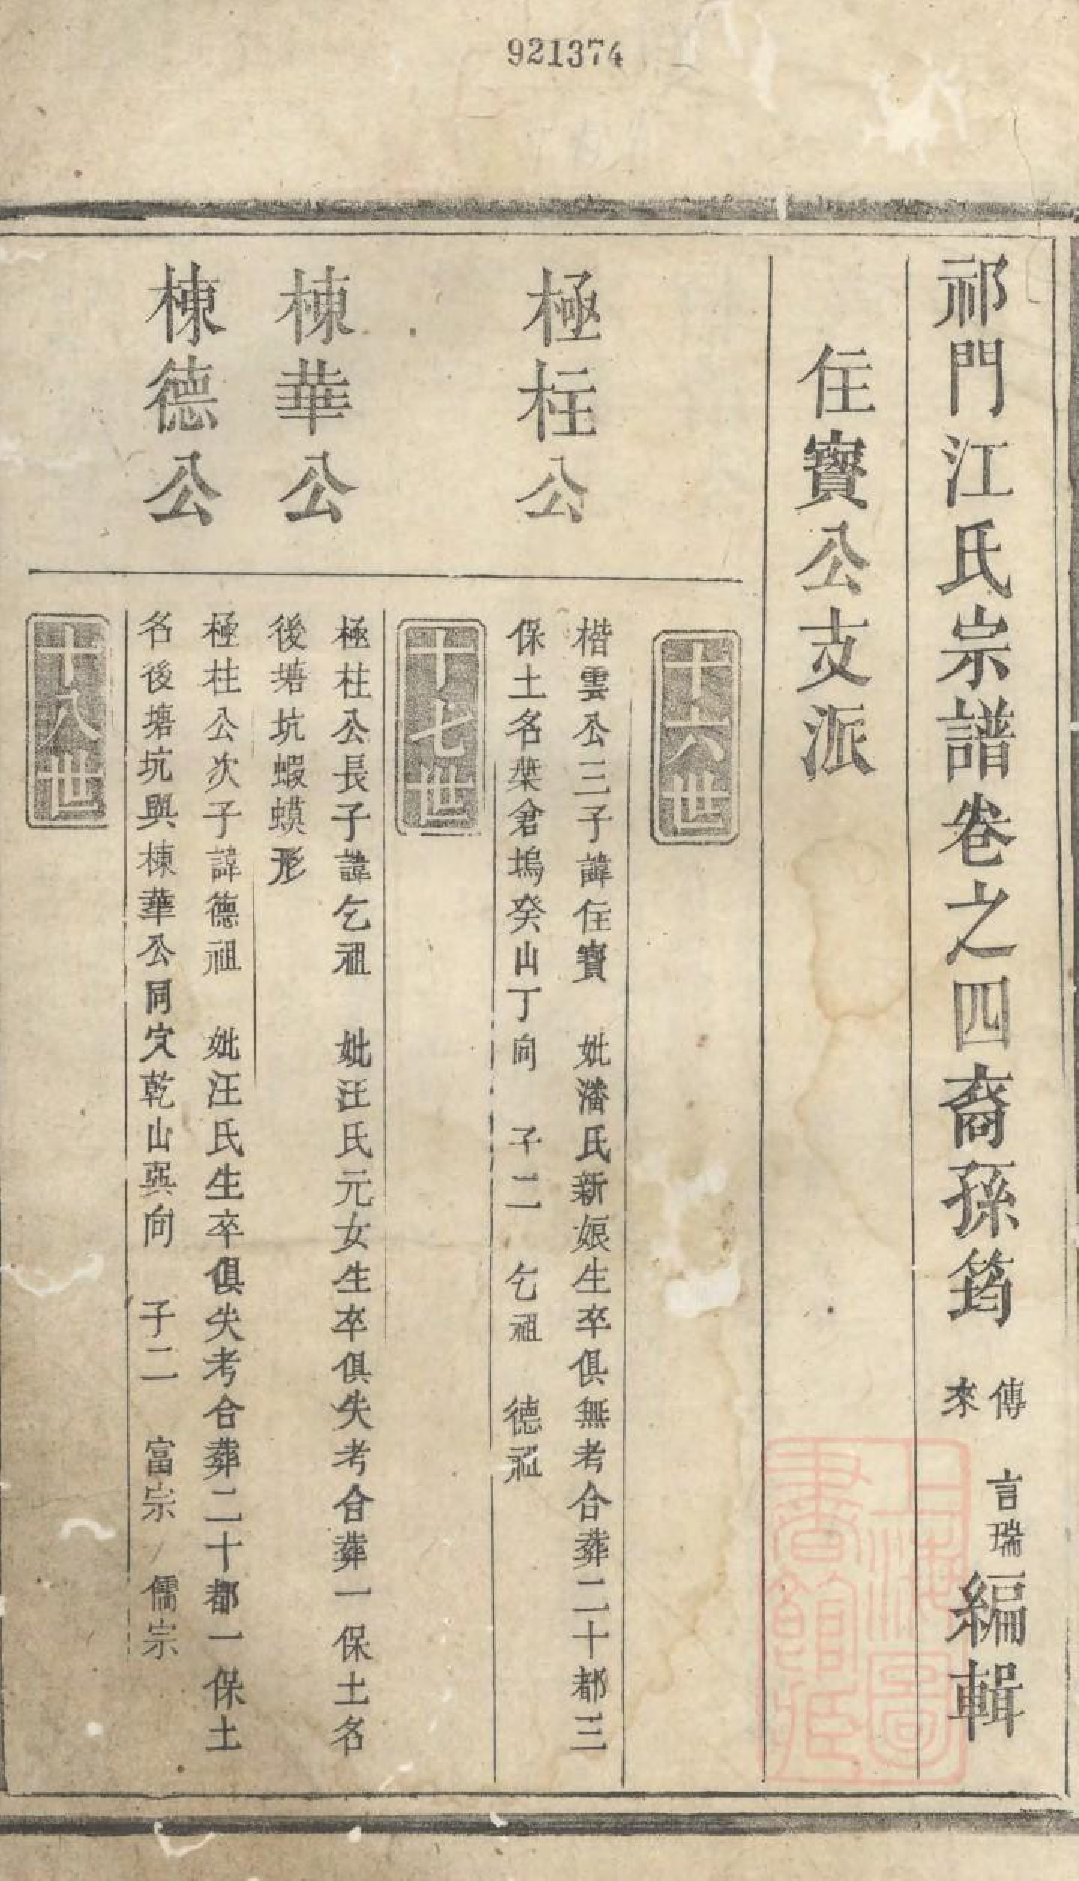 921374
祁門江氏宗譜卷之四裔孫筠
傳
來
言
瑞
編輯
住寶公支派
十六世
極柱公
楷雲公三子諱住寶　妣潘氏新娘生卒俱無考合葬二十都三
保土名葉倉塢癸山丁向　子二　乞祖　德祖
十七世
棟華公
極柱公長子諱乞祖　妣汪氏元女生卒俱失考合葬一保土名
後塘坑蝦蟆形
棟德公
極柱公次子諱德祖　妣汪氏生卒俱失考合葬二十都一保土
名後塘坑與棟華公同穴乾山巽向　子二　富宗　儒宗
十八世
上海圖書館藏